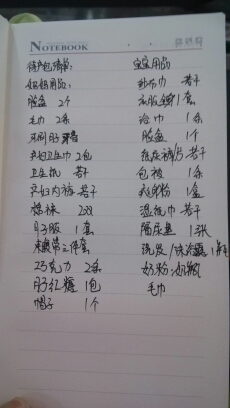 NOTEBOOK
待产包清单:
妈妈用品:
脸盆 2个
毛巾 2条
牙刷
产妇卫生巾 2包
卫生纸 若干
产妇内裤 若干
棉袜 2双
月子服 1套
三件套
巧克力 2条
月子红糖 1包
帽子 1个
宝宝用品
纱布巾 若干
衣服 1套
浴巾 1条
脸盆 1个
纸尿裤/片 若干
包被 1条
1盒
湿纸巾 若干
隔尿垫 1张
洗发/沐浴露 1瓶
奶粉、奶瓶
毛巾